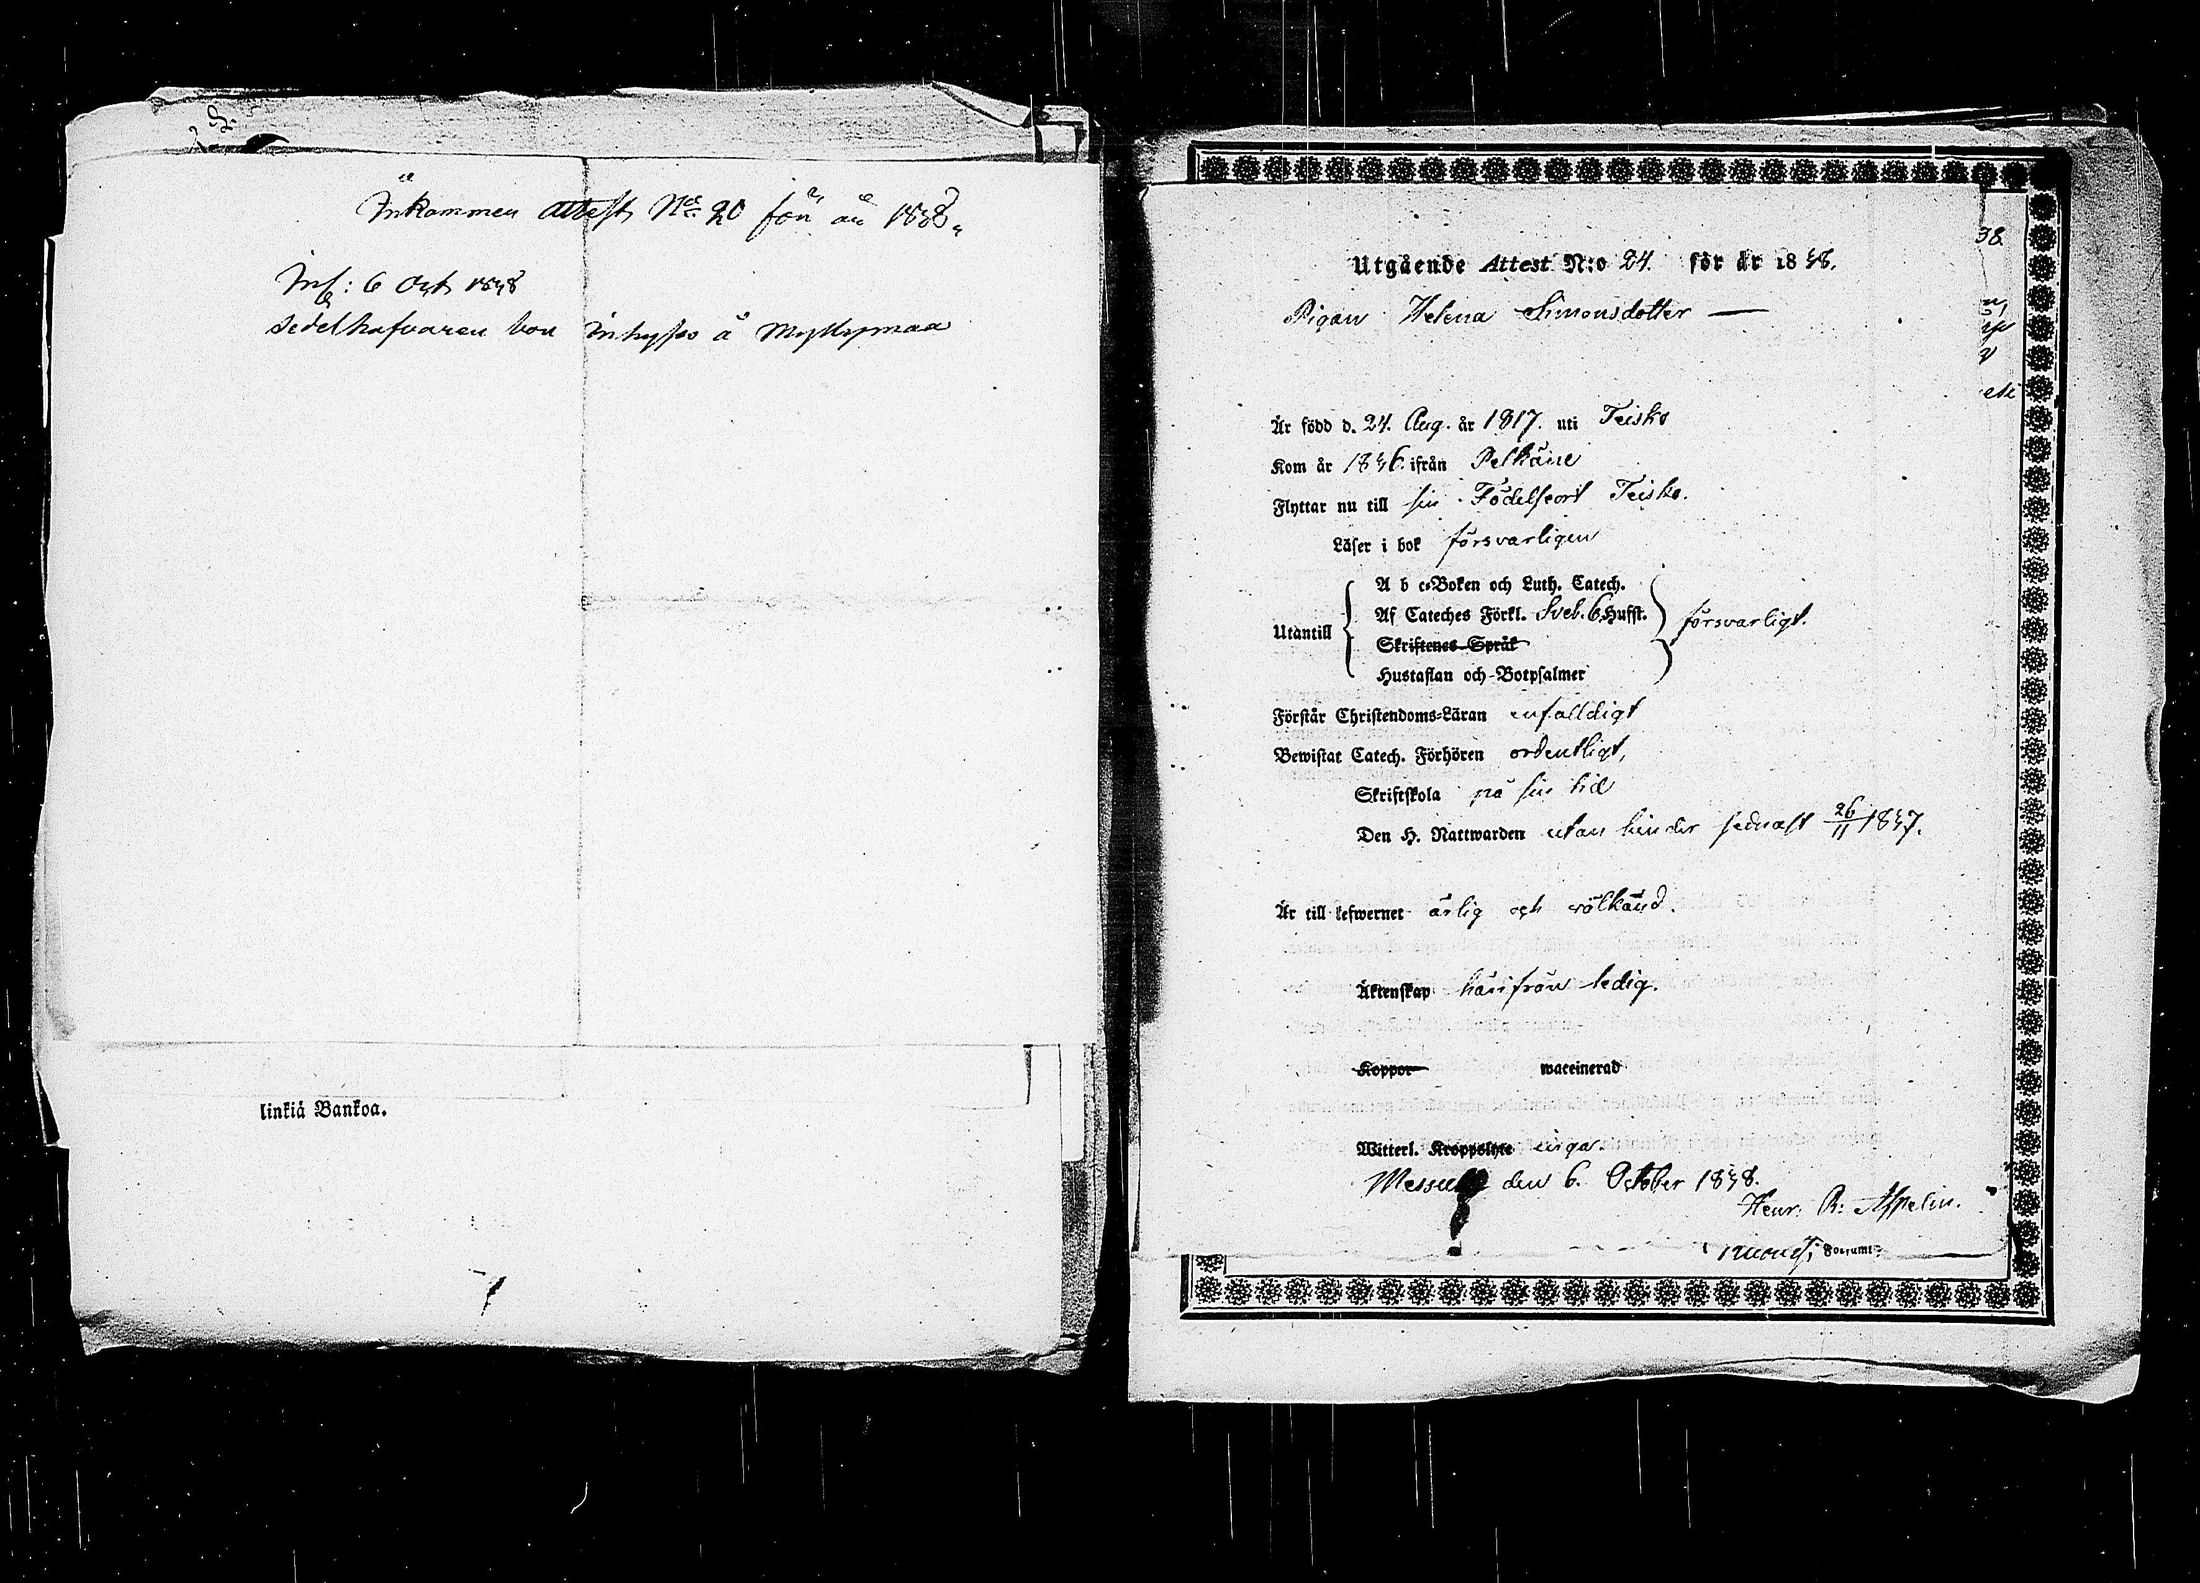 Inkommen attest No 20 för år 1848.
Inf: 6 Oct 1848
sedelhafvaren bor Inhyses å Myllymaa
linkiä Bankoa.
Utgående Attest N:o 24. för år 1848.
Pigan Helena Simonsdotter —
Är född d. 24. Aug. år 1817. uti Teisko
Kom år 1846. ifrån Pelkäne
Flyttar nu till sin Födelseort Teisko.
Läser i bok försvarligen
A b c=Boken och Luth. Catech.
Utantill Af Cateches Förkl. Sveb. 6. Hufst. försvarligt.
Skriftenes Språk
Hustaflan och Botpsalmer
Förstår Christendoms=Läran enfalldigt
Bewistat Catech. Förhören ordentligt,
Skriftskola på sin tid
Den H. Nattwarden utan hinder sednast 26/11 1847.
Är till lefwernet ärlig och välkänd.
Äktenskap härifrån ledig.
Koppor waccinerad
Witterl. Kroppslyte inga.
den 6. October 1848.
Henr. R: Aspelin.
38.